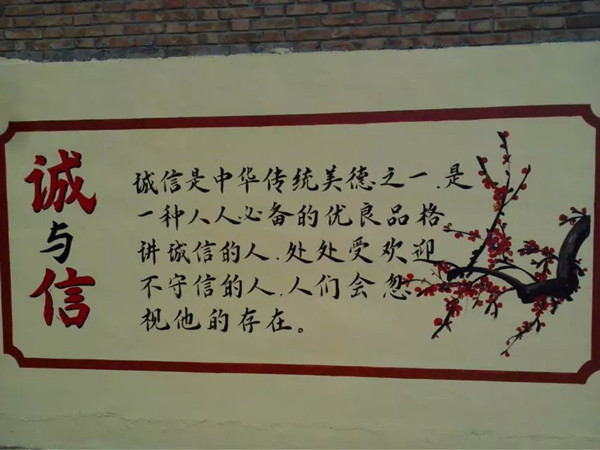 诚与信
诚信是中华传统美德之一.是
一种人人必备的优良品格
讲诚信的人.处处受欢迎
不守信的人.人们会忽
视他的存在。